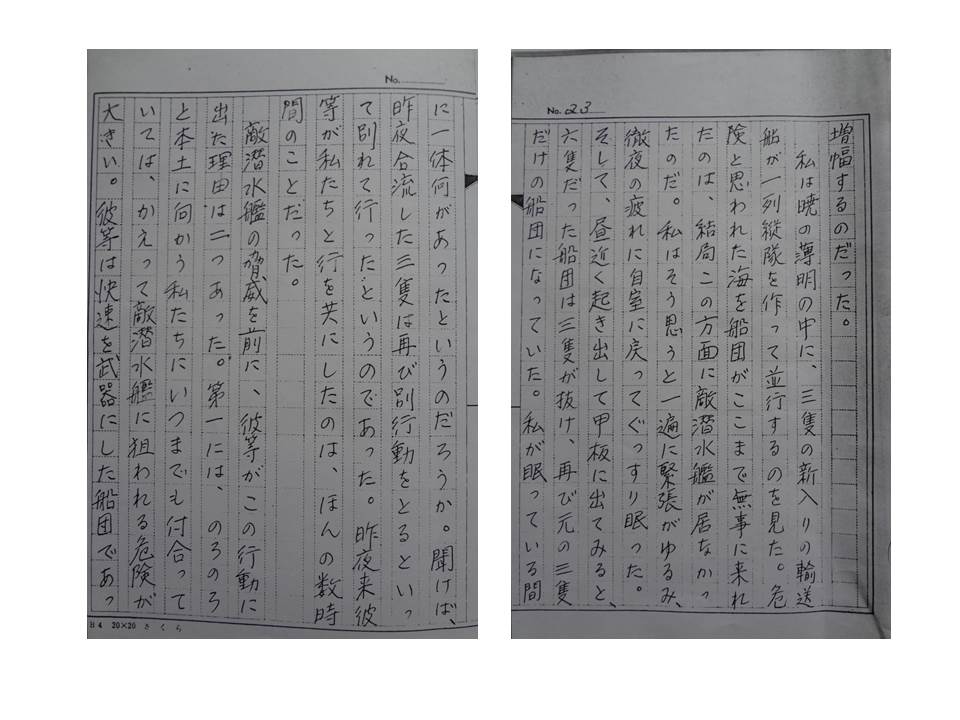 No. 23
増幅するのだった。
私は暁の薄明の中に、三隻の新入りの輸送
船が一列縦隊を作って並行するのを見た。危
険と思われた海を船団がここまで無事に来れ
たのは、結局この方面に敵潜水艦が居なかっ
たのだ。私はそう思うと一遍に緊張がゆるみ、
徹夜の疲れに自室に戻ってぐっすり眠った。
そして、昼近く起き出して甲板に出てみると、
六隻だった船団は三隻が抜け、再び元の三隻
だけの船団になっていた。私が眠っている間
No.
に一体何があったというのだろうか。聞けば、
昨夜合流した三隻は再び別行動をとるといっ
て別れて行ったというのであった。昨夜来彼
等が私たちと行を共にしたのは、ほんの数時
間のことだった。
敵潜水艦の脅威を前に、彼等がこの行動に
出た理由は二つあった。第一には、のろのろ
と本土に向かう私たちにいつまでも付合って
いては、かえって敵潜水艦に狙われる危険が
大きい。彼等は快速を武器にした船団であっ
B4 20×20 さくら